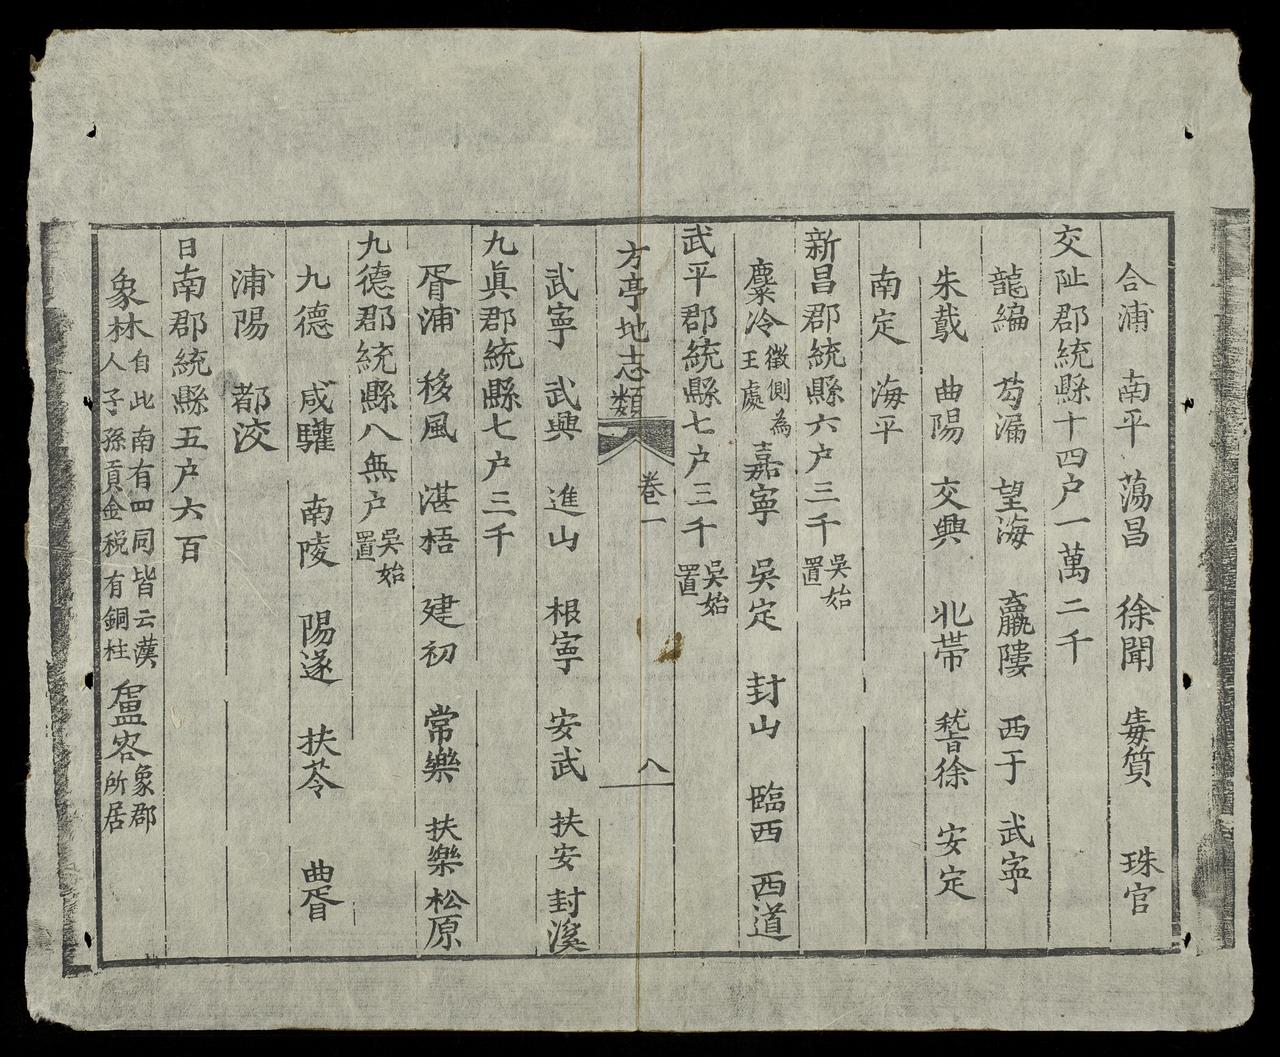 合浦 南平 蕩昌 徐聞 毒質 珠官
交阯郡統縣十四户一萬二千
龍編 芶漏 望海 𦢊𨻻 西于 武寜
朱䳒 曲陽 交興 北帶 嵇徐 安定
南定 海平
新昌郡統縣六户三千吳始置
麋泠徵側為王處 嘉寜 吳定 封山 臨西 西道
武平郡統縣七户三千吳始置
方亭地志類 卷一 八
武寜 武興 進山 根寜 安武 扶安 封溪
九眞郡統縣七户三千
胥浦 移風 湛梧 建初 常樂 扶樂 松原
九德郡統縣八無户吳始置
九德 咸驩 南陵 陽遂 扶苓 曲胥
浦陽 都洨
日南郡統縣五户六百
象林自此南有四同皆云漢人子孫貢金税有銅柱 盧容象郡所居